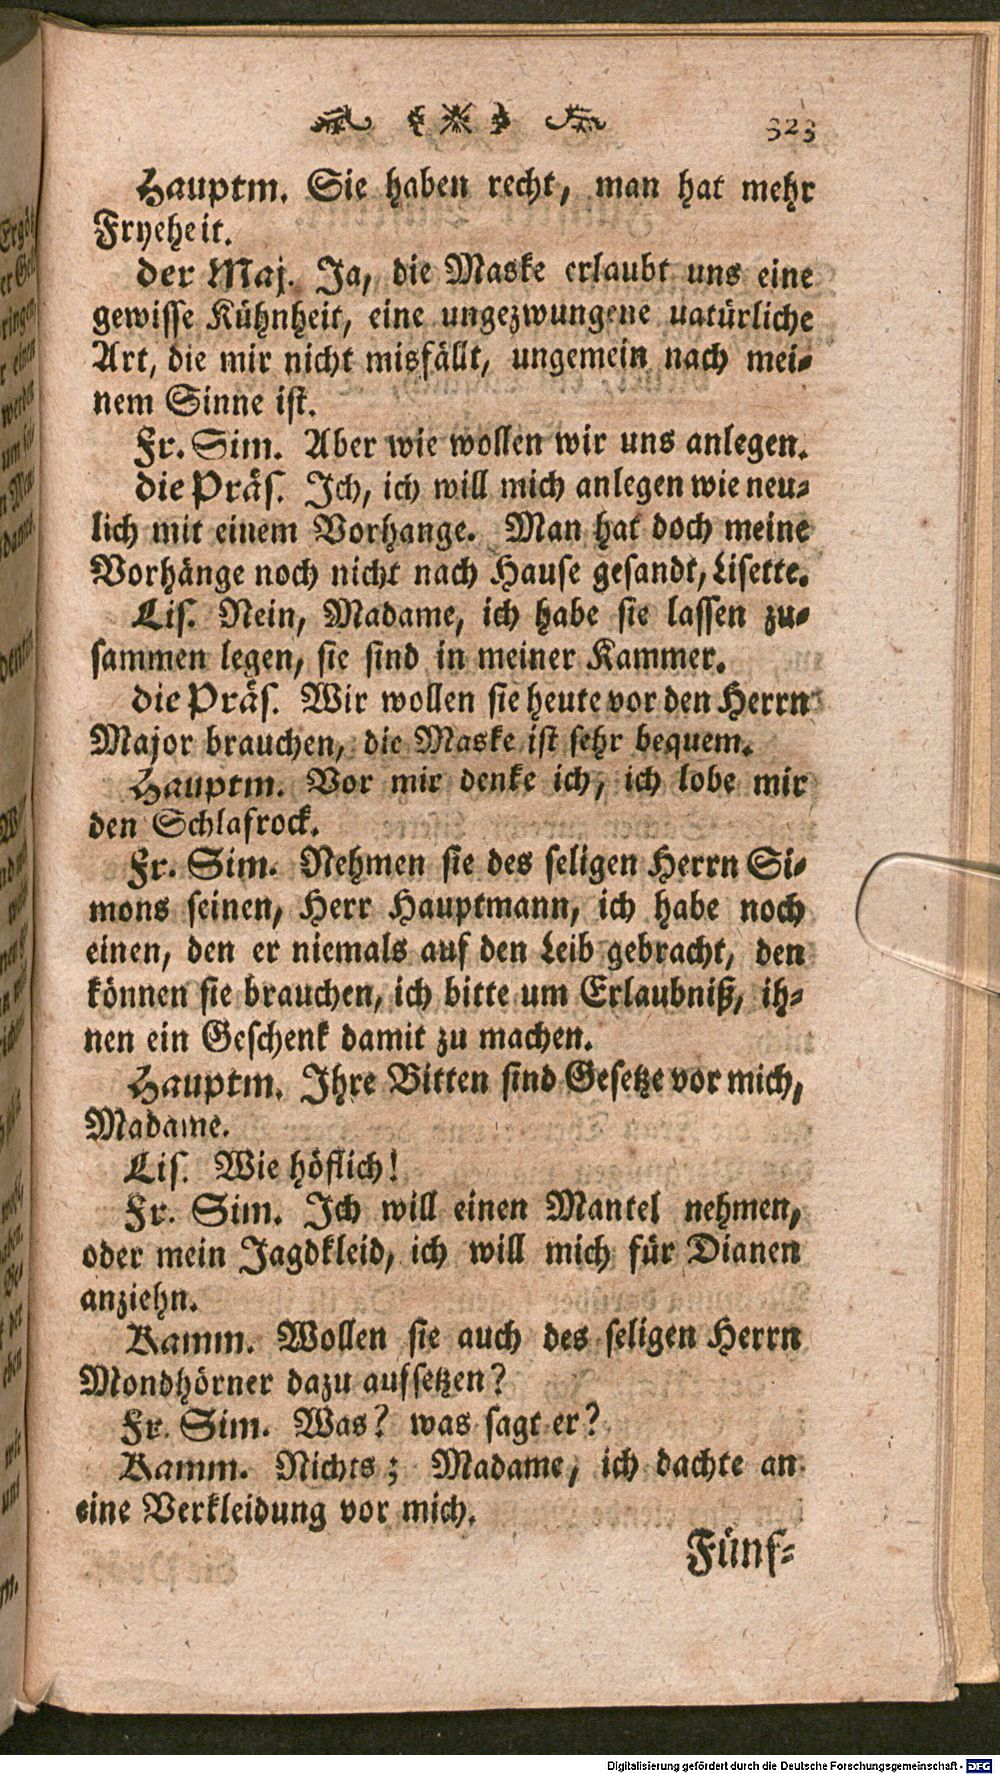 323
Hauptm. Sie haben recht, man hat mehr
Fryeheit.
der Maj. Ja, die Maske erlaubt uns eine
gewisse Kühnheit, eine ungezwungene uatürliche
Art, die mir nicht misfällt, ungemein nach mei-
nem Sinne ist.
Fr. Sim. Aber wie wollen wir uns anlegen.
die Präs. Ich, ich will mich anlegen wie neu-
lich mit einem Vorhange. Man hat doch meine
Vorhänge noch nicht nach Hause gesandt, Lisette.
Lis. Nein, Madame, ich habe sie lassen zu-
sammen legen, sie sind in meiner Kammer.
die Präs. Wir wollen sie heute vor den Herrn
Major brauchen, die Maske ist sehr bequem.
Hauptm. Vor mir denke ich, ich lobe mir
den Schlafrock.
Fr. Sim. Nehmen sie des seligen Herrn Si-
mons seinen, Herr Hauptmann, ich habe noch
einen, den er niemals auf den Leib gebracht, den
können sie brauchen, ich bitte um Erlaubniß, ih-
nen ein Geschenk damit zu machen.
Hauptm. Ihre Bitten sind Gesetze vor mich,
Madame.
Lis. Wie höflich!
Fr. Sim. Ich will einen Mantel nehmen,
oder mein Jagdkleid, ich will mich für Dianen
anziehn.
Ramm. Wollen sie auch des seligen Herrn
Mondhörner dazu aufsetzen?
Fr. Sim. Was? was sagt er?
Ramm. Nichts; Madame, ich dachte an
eine Verkleidung vor mich.
Fünf-
Digitalisierung gefördert durch die Deutsche Forschungsgemeinschaft - DFG